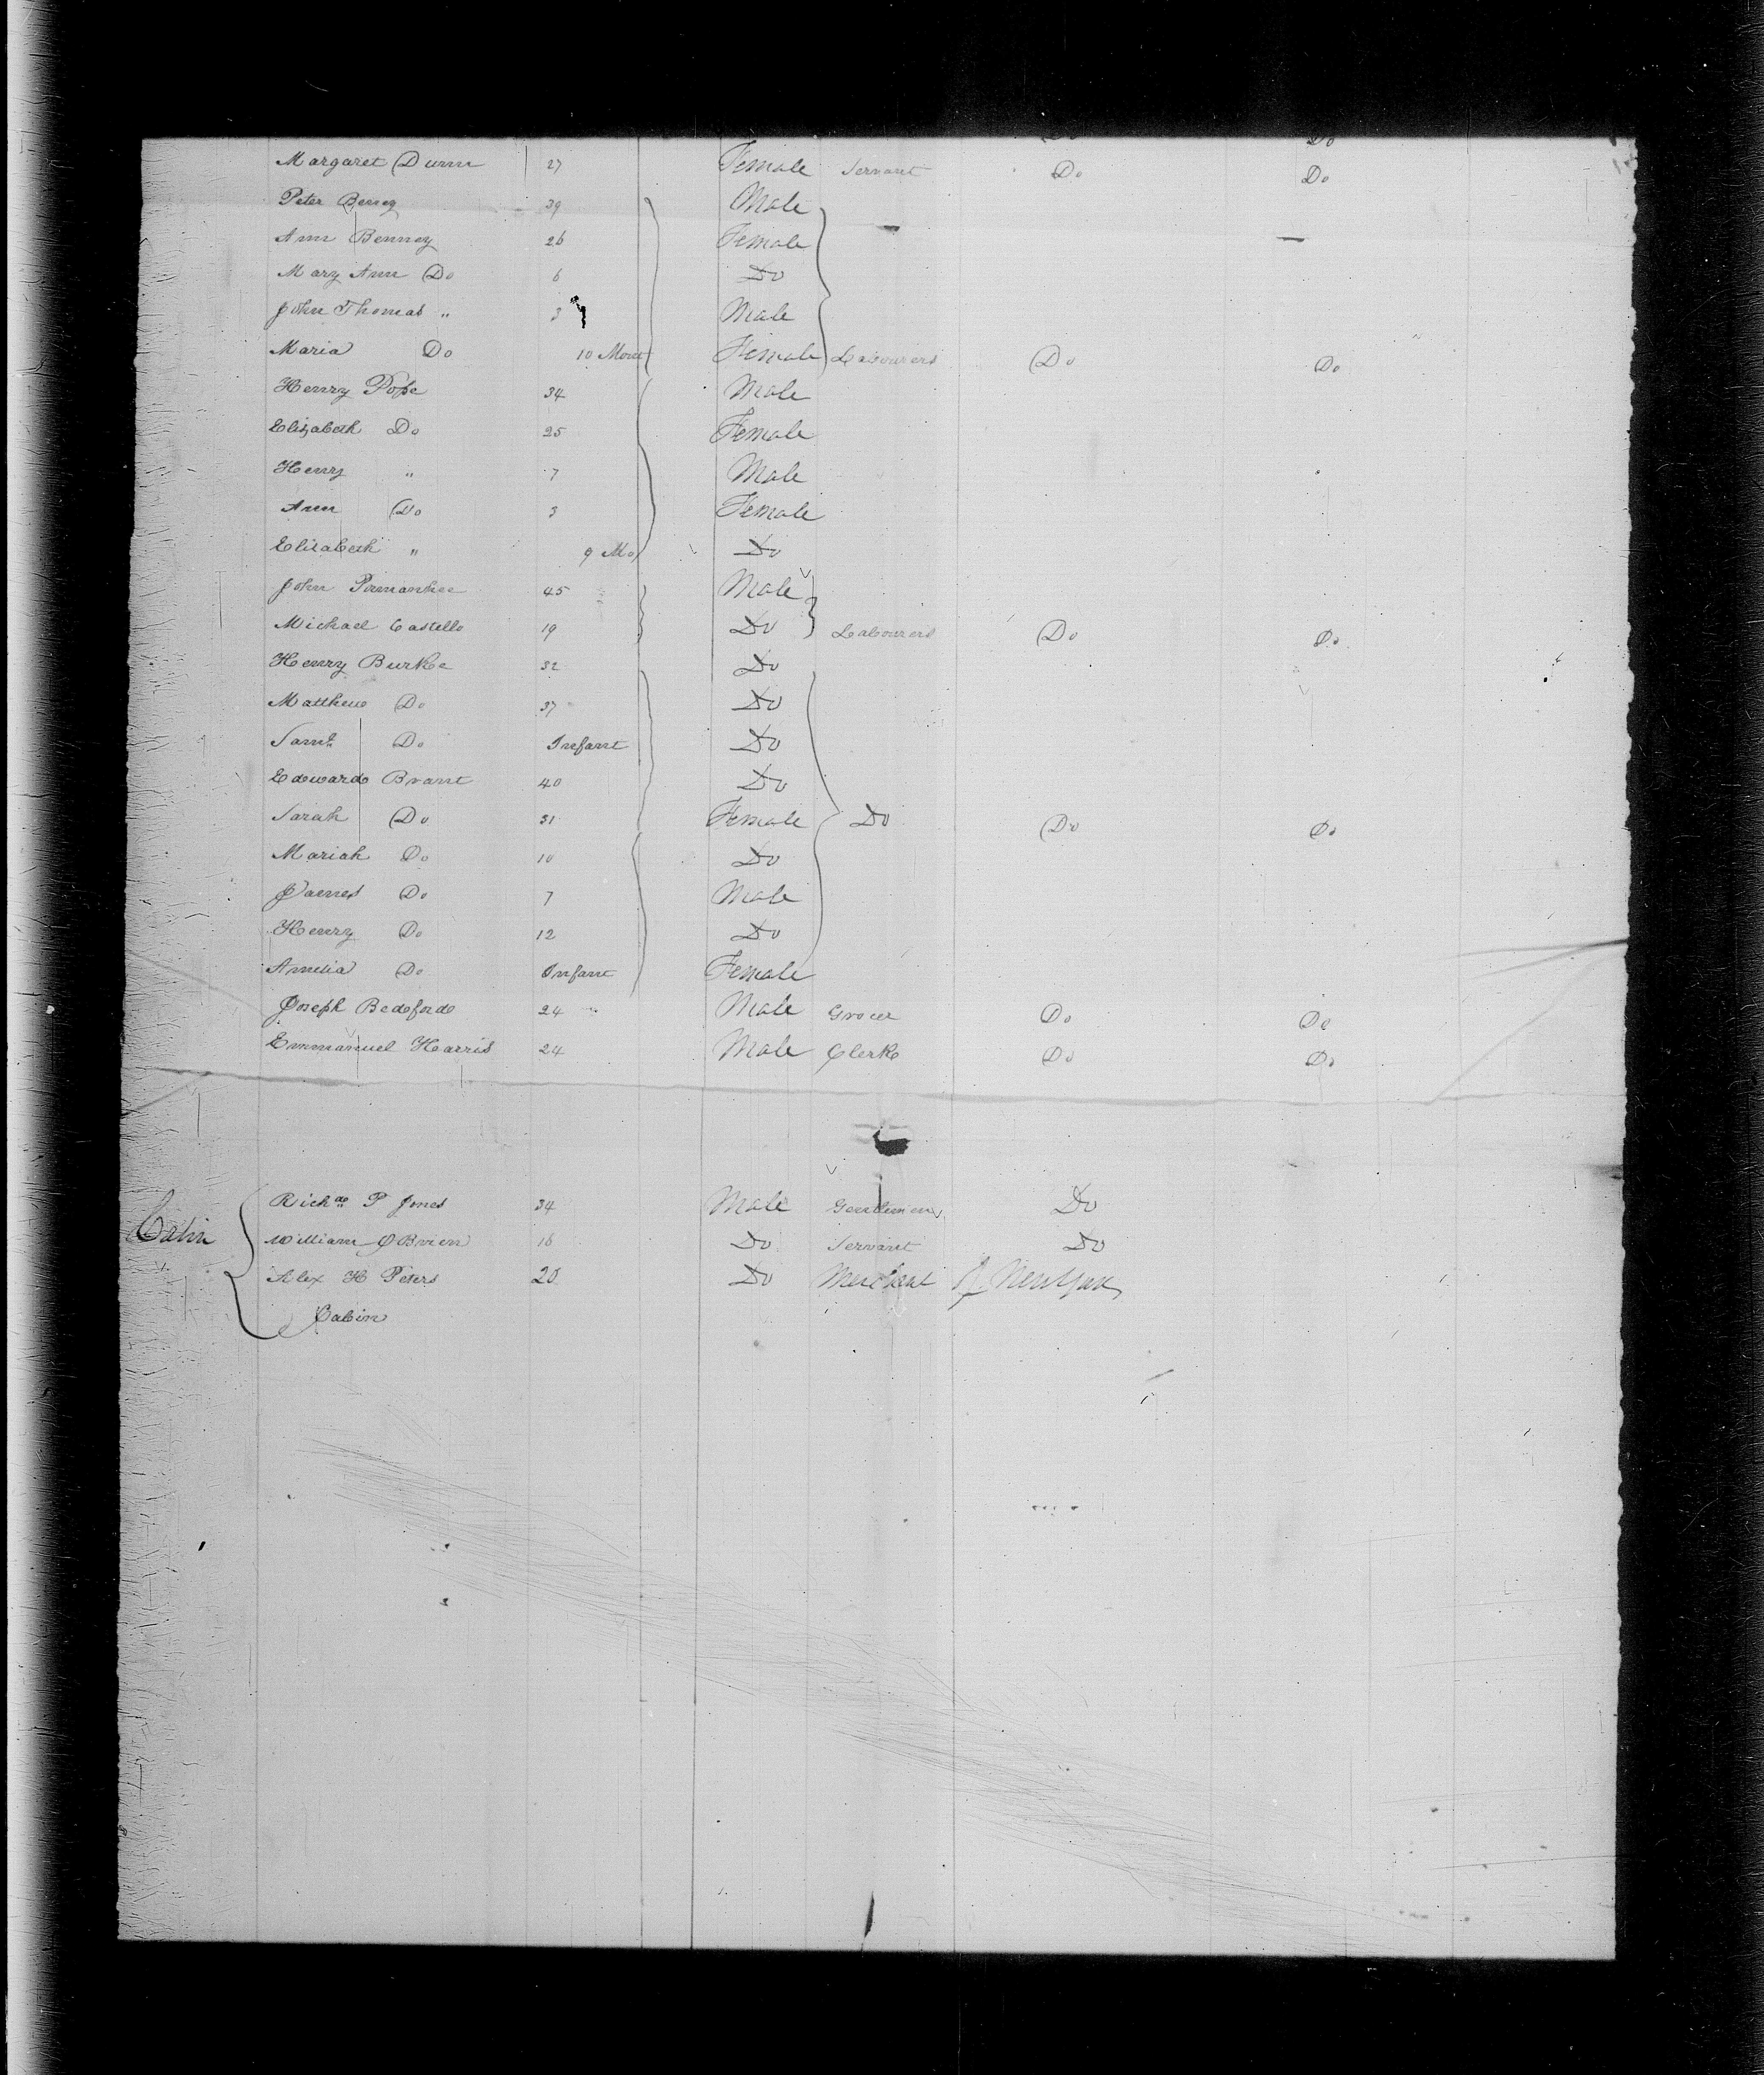 Do Do
Margaret Dunn 27 Female Servant Do Do
Peter Benny 39 Male
Ann Benney 26 Female
Mary Ann Do 6 Do
John Thomas " 3 Male
Maria Do 10 Mont Female Labourers Do Do
Henry Pope 34 Male
Elizabeth Do 25 Female
Henry " 7 Male
Ann Do 3 Female
Elizabeth " 9 Mo Do
John 45 Male
Michael Castello 19 Do Labourers Do Do
Henry Burke 32 Do
Matthew Do 37 Do
Saml Do Infant Do
Edward Brant 40 Do
Sarah Do 31 Female Do Do Do
Mariah Do 10 Do
James Do 7 Male
Henry Do 12 Do
Amelia Do Infant Female
Joseph Bedford 24 Male Grocer Do Do
Emmanuel Harris 24 Male Clerk Do Do
Richd P Jones 34 Male Gentleman Do
Cabin William OBrien 16 Do Servant Do
Alex H Peters 26 Do Merchant of New York
Cabin